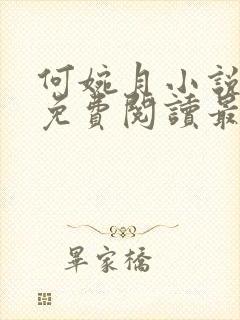 何婉月小說
免費閱讀最
畢家橋